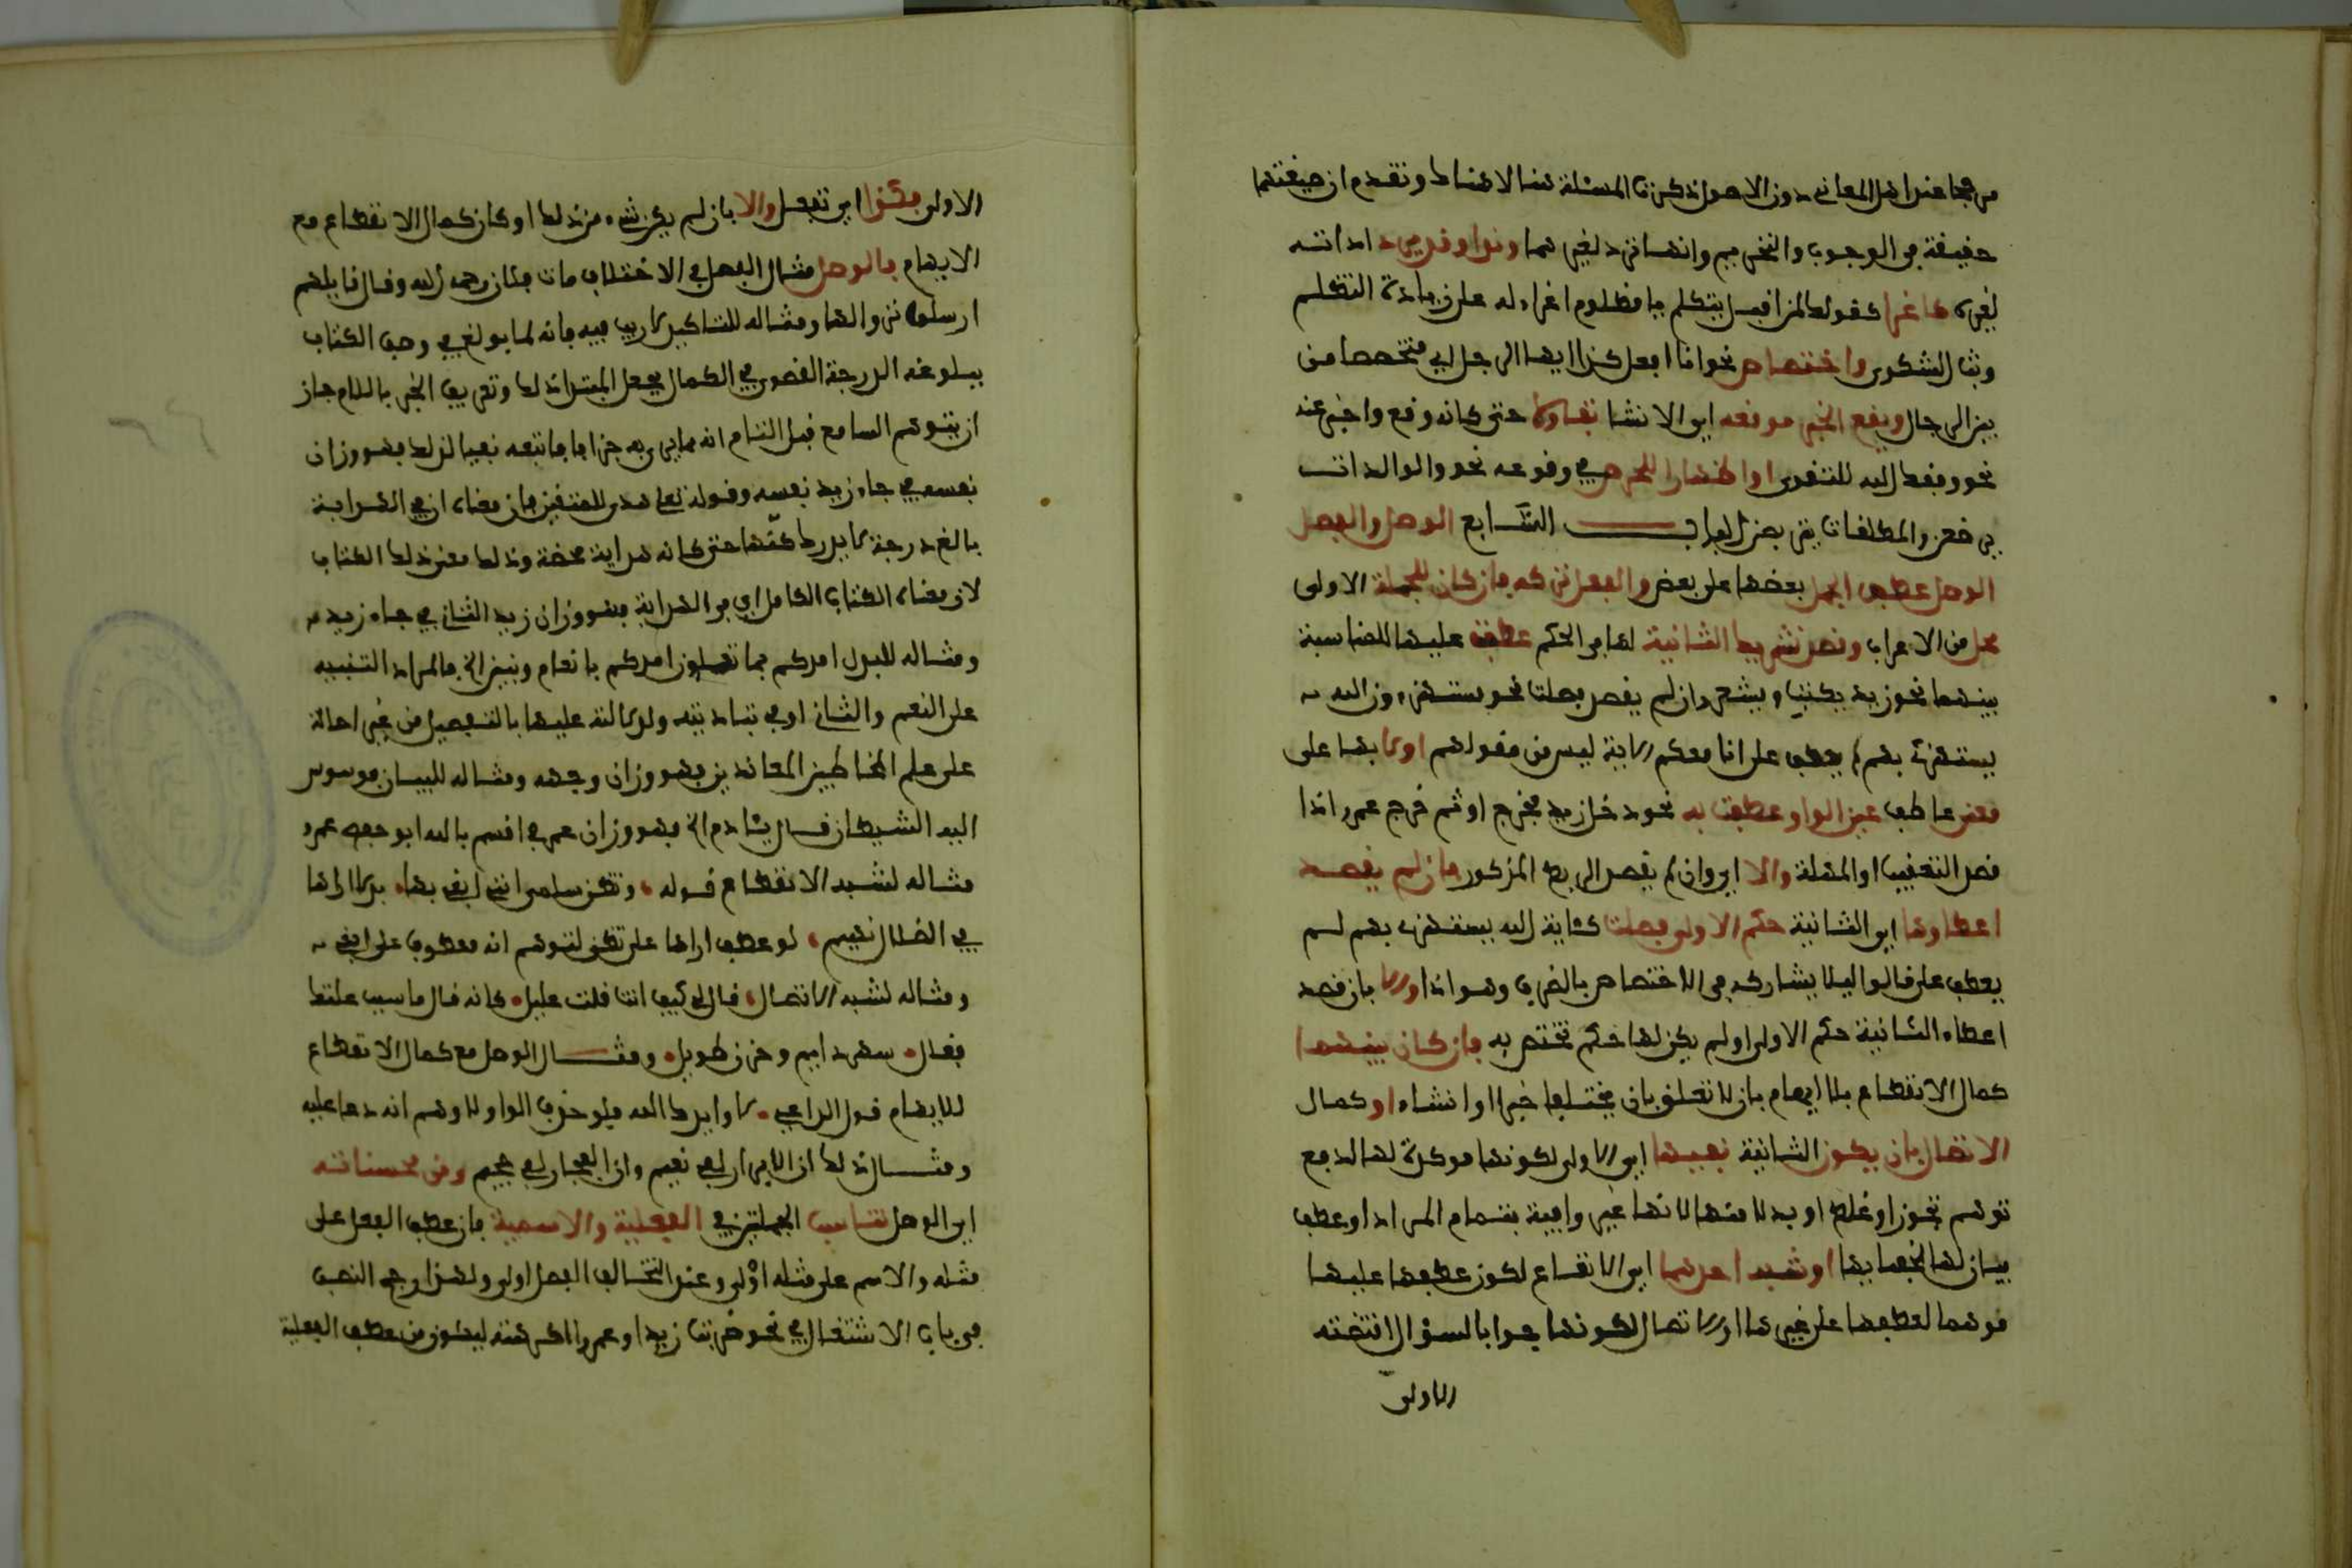 مرجحا عند اهل المعاني دون الاصول ذكرنا المسئلة هنا لا هناك وتقدم ان صيغتهما
حقيقة في الوجوب والتحريم وانها ترد لغيرهما ونداء وقد يرد اداته
لغيره كاغراء كقولك لمن اقبل يتكلم يا مظلوم اغراء له على زيادة التكلم
وبث الشكوى واختصاص نحو انا افعل كذا ايها الرجل اي متخصصا من
بين الرجال ويقع الخبر موقعه اي الانشا تفاولا حتى كانه وقع واخبر عنه
نحو وفقك الله للتقوى او اظهارا للحرص في وقوعه نحو والوالدات
يرضعن والمطلقات يتربصن الباب السابع الوصل والفصل
الوصل عطف الجمل بعضها على بعض والفصل تركه فان كان للجملة الاولى
محل من الاعراب وقصد تشريك الثانية لها في الحكم عطفت عليها للمناسبة
بينهما نحو زيد يكتب ويشعر وان لم يقصد فصلت نحو مستهزءون الله
يستهزئ بهم لم يعطف على انا معكم لانه ليس من مقولهم اولا بها على
معنى عاطف غير الواو عطفت به نحو دخل زيد فخرج او ثم خرج عمرو اذا
قصد التعقيب او المهلة والا اي وان لم يقصد الربط المذكور فان لم يقصد
اعطاوها اي الثانية حكم الاولى فصلت كئاية الله يستهزء بهم لم
يعطف على قالوا ليلا يشاركه في الاختصاص بالظرف وهو اذا والا بان قصد
اعطاء الثانية حكم الاولى او لم يكن لها حكم تختص به فان كان بينهما
كمال الانقطاع بلا ايهام بان لا تعلق بان يختلفا خبرا وانشاء او كمال
الاتصال بان يكون الثانية نفسها اي الاولى لكونها موكدة لها لدفع
توهم تجوز او غلط او بدلا منها لانها غير وافية بتمام المراد او عطف
بيان لها لخفايها او شبه احدهما اي الانقطاع لكون عطفها عليها
موهما لعطفها على غيرها او الاتصال لكونها جوابا لسؤال اقتضته
الاولى
الاولى فكذا اي تفصل والا بان لم يكن شيء من ذلك او كان كمال الانقطاع مع
الايهام فالوصل مثال الفصل في الاختلاف مات فلان رحمه الله وقال قايلهم
ارسوا نزاولها ومثاله للتاكيد لا ريب فيه فانه لما بولغ في وصف الكتاب
ببلوغه الدرجة القصوى في الكمال بجعل المبتدا ذلك وتعريف الخبر باللام جاز
ان يتوهم السامع قبل التمام انه مما يرمى به جزافا فاتبعه نفيا لذلك فهو وزان
نفسه في جاء زيد نفسه وقوله تعلى هدى للمتقين فان معناه انه في الهداية
بالغ درجة لا يدرك كنهها حتى كانه هداية محضة وذلك معنى ذلك الكتاب
لان معناه الكتاب الكامل اي في الهداية فهو وزان زيد الثاني في جاء زيد
ومثاله للبدل امدكم بما تعلمون امدكم بانعام وبنين الخ فالمراد التنبيه
على النعم والثاني اوفى بتاديته ولدلالته عليها بالتفصيل من غير احالة
على علم المخاطبين المعاندين فهو وزان وجهه ومثاله للبيان فوسوس
اليه الشيطان قال يئادم الخ فهو وزان عمر في اقسم بالله ابو حفص عمر
مثاله لشبه الانقطاع قوله وتظن سلمى انني ابغي بها بدلا اراها
في الضلال تهيم لو عطف اراها على تظن لتوهم انه معطوف على ابغي
ومثاله لشبه الاتصال قال لي كيف انت قلت عليل كانه قال ما سبب علتك
فقال سهر دايم وحزن طويل ومثال الوصل مع كمال الانقطاع
للايهام قول الداعي لا وايدك الله فلو حذف الواو لاوهم انه دعا عليه
ومثال ذلك ان الابرار لفي نعيم وان الفجار لفي جحيم ومن محسناته
اي الوصل تناسب الجملتين في الفعلية والاسمية فان عطف الفعل على
مثله والاسم على مثله اولى وعند التخالف الفصل اولى ولهذا رجح النصب
في باب الاشتغال في نحو ضربت زيدا وعمروا اكرمته ليكون من عطف الفعلية